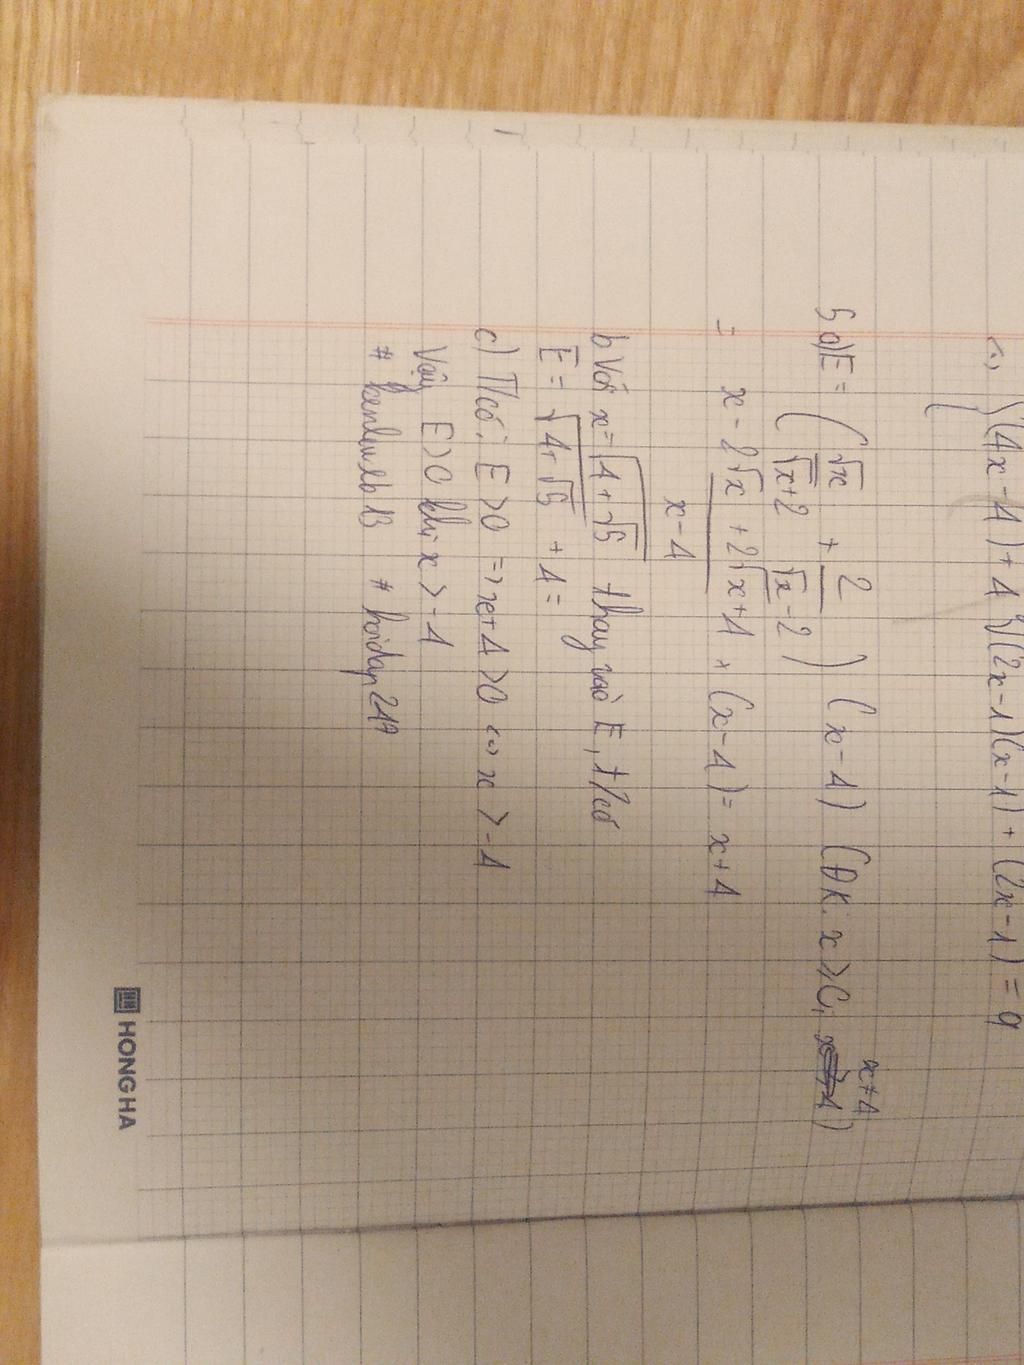 √(4x-4)+4√(2x-1)(x-1)+(2x-1)=9
5 a) E = (√x/(√x+2) + 2/(√x-2)) (x-4) (ĐK: x≥0, x≠4)
= (x-2√x+2√x+4)/(x-4) × (x-4) = x+4
b Với x=√4+√5 thay vào E, t/có
E = √4+√5 + 4 =
c) T/có: E>0 => x+4>0 <=> x>-4
Vậy E>0 khi x>-4
# hoidap247
HONG HA